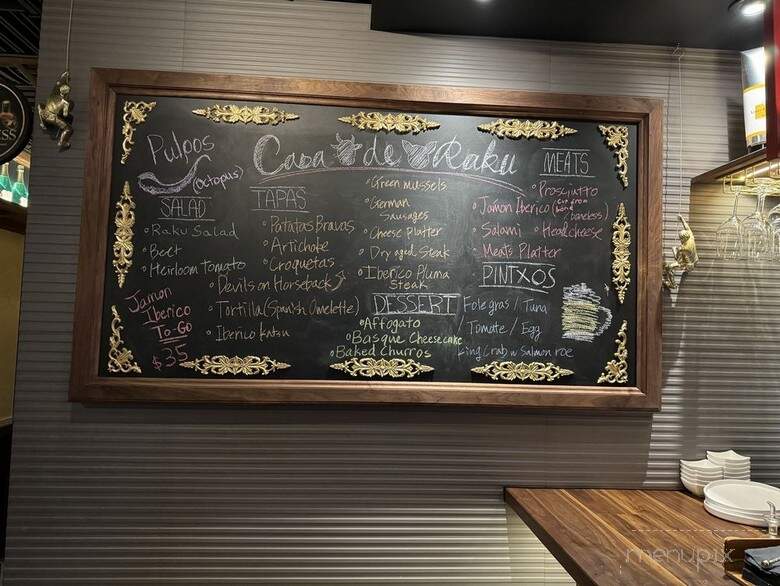 Casa de Raku
Pulpos
(octopus)
SALAD
Raku Salad
Beet
Heirloom Tomato
Jamon
Iberico
To-Go
$35
TAPAS
Patatas Bravas
Artichoke
Croquetas
Devils on Horseback
Tortilla (Spanish Omelette)
Iberico katsu
Green mussels
German
Sausages
Cheese platter
Dry aged Steak
Iberico Pluma
Steak
DESSERT
Affogato
Basque Cheesecake
Baked Churros
MEATS
Prosciutto
Jamon Iberico (cut from
bone
/boneless)
Salami Headcheese
Meats Platter
PINTXOS
Foie gras / Tuna
/ Tomato / Egg
King Crab w Salmon roe
ESS
menupix